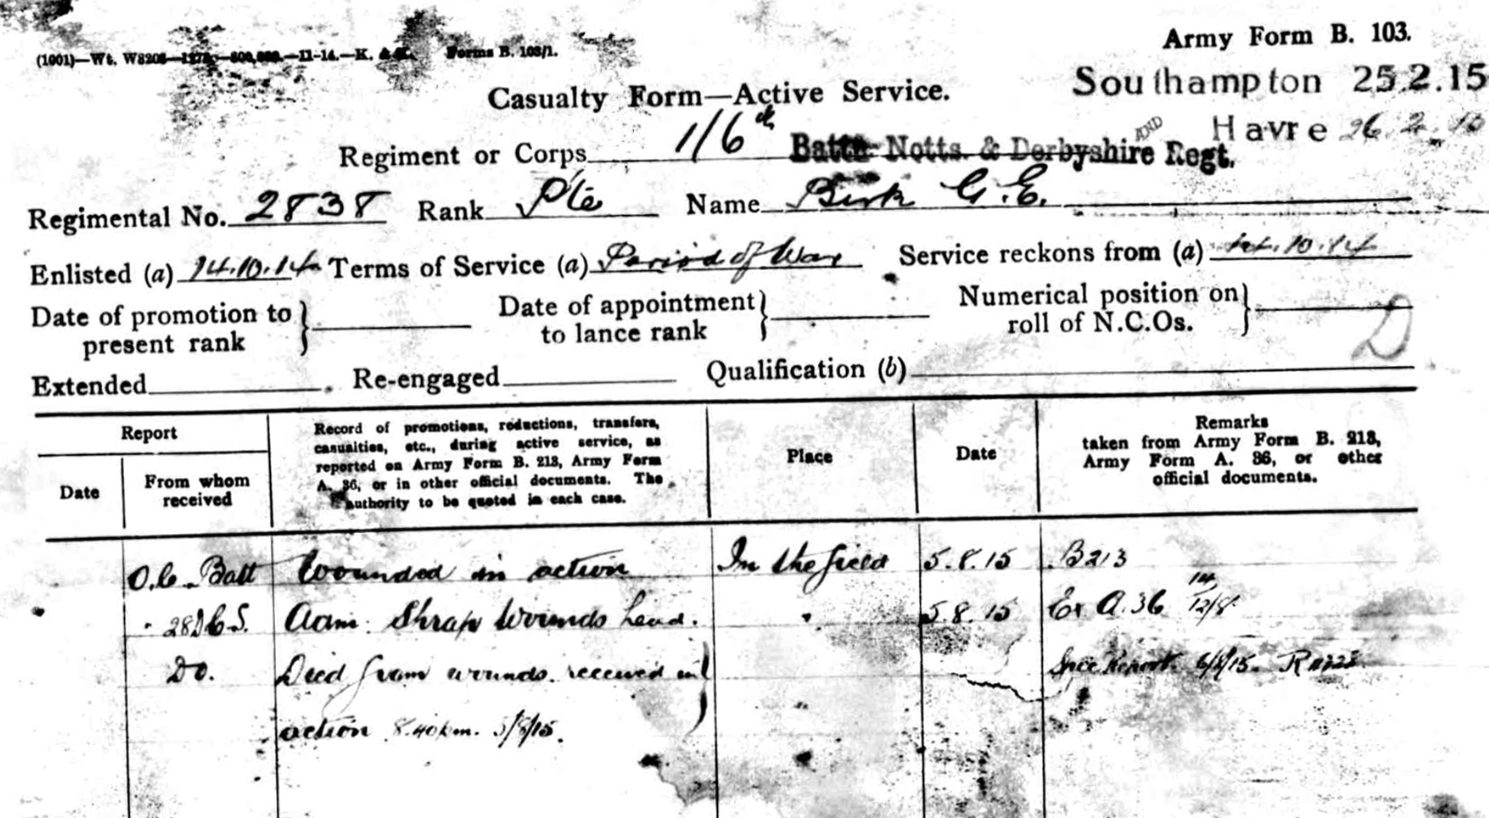 Army Form B. 103.
(1001)—Wt. W8206— —11-14.—K. & Forms B. 103/1.
Southampton 25.2.15
Casualty Form—Active Service.
AND
Havre 26.2.15
Regiment or Corps 1/6th Battn Notts. & Derbyshire Regt.
Regimental No. 2838 Rank Pte Name Birk G.E.
Enlisted (a) 14.10.14 Terms of Service (a) Period of War Service reckons from (a) 14.10.14
Date of promotion to present rank } Date of appointment to lance rank } Numerical position on roll of N.C.Os. }
D
Extended Re-engaged Qualification (b)
Report
Date
From whom received
Record of promotions, reductions, transfers, casualties, etc., during active service, as reported on Army Form B. 213, Army Form A. 36, or in other official documents. The authority to be quoted in each case.
Place
Date
Remarks
taken from Army Form B. 213, Army Form A. 36, or other official documents.
O.C. Batt Wounded in action In the field 5.8.15 B213
" 28 C.S. Adm: Shrap Wounds head. " 5.8.15 A.36 12/8
Do. Died from wounds received in } Spec Report 6/8/15.
action 8.40 pm. 5/8/15.